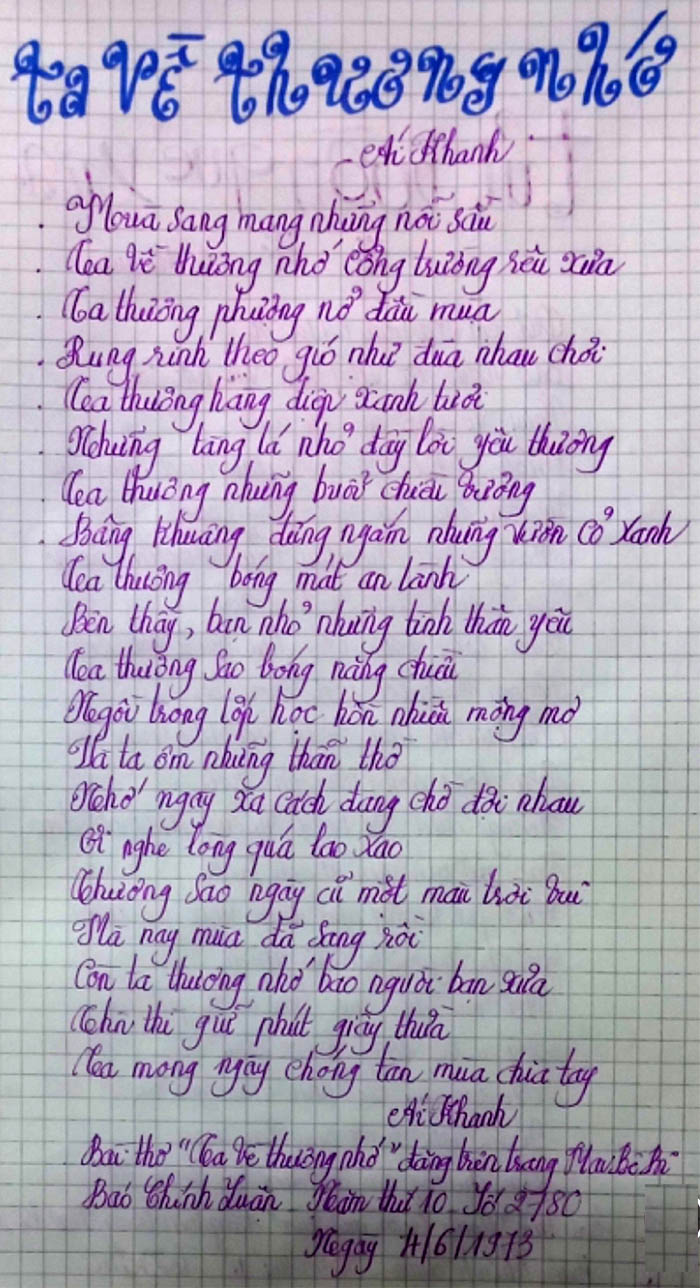 ta về thương nhớ
Ái Khanh
Mùa sang mang những nỗi sầu
Ta về thương nhớ cổng trường rêu xưa
Ta thương phượng nở đầu mùa
Rung rinh theo gió như đùa nhau chơi
Ta thương hàng điệp xanh tươi
Những tàng lá nhỏ đầy lời yêu thương
Ta thương những buổi chiều buông
Bâng khuâng đứng ngắm những vườn cỏ xanh
Ta thương bóng mát an lành
Bên thầy, bạn nhỏ những tình thân yêu
Ta thương sao bóng nắng chiều
Ngồi trong lớp học hồn nhiên mộng mơ
Mà ta ôm những thẩn thờ
Nhớ ngày xa cách đang chờ đợi nhau
Ơi nghe lòng quá lao xao
Thương sao ngày cũ một màu trời vui
Mà nay mùa đã sang rồi
Còn ta thương nhớ bao người bạn xưa
Thôi thì giữ phút giây thừa
Ta mong ngày chóng tàn mùa chia tay
Ái Khanh
Bài thơ "Ta về thương nhớ" đăng trên trang Mai Bê Bi
Báo Chính Luận Năm thứ 10 Số 2780
Ngày 4/6/1973